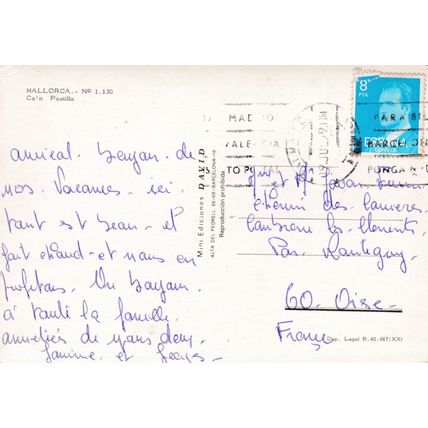 MALLORCA. - Nº 1.130
Ca'n Pastilla
amical bonjour de
nos vacances ici
tout est beau et
fait chaud et nous en
profitons. Un bonjour
à toute la famille
amitiés de nous deux
Janine et Georges
Mini Ediciones DAVID
ALTA DEL PEDRELL, 66-68-BARCELONA-16
Reproducción prohibida
MADRID
VALENCIA
POSTAL
PARA
BARCELONA
PONGA
8
PTA
ESPAÑA
Mr et Mme
chemin des
Par Rantigny
60. Oise
France
Dep. Legal B. 40.487/XXI